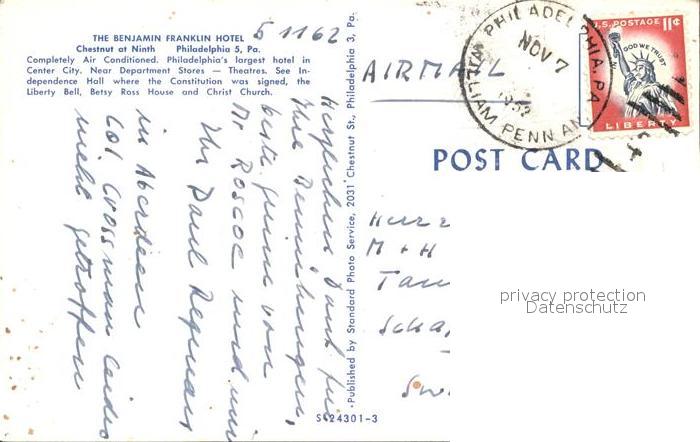 THE BENJAMIN FRANKLIN HOTEL
Chestnut at Ninth Philadelphia 5, Pa.
Completely Air Conditioned. Philadelphia's largest hotel in
Center City. Near Department Stores — Theatres. See In-
dependence Hall where the Constitution was signed, the
Liberty Bell, Betsy Ross House and Christ Church.
5 11 62
Herzlichen Dank für
Ihre Bemühungen,
beste Grüsse von
Dr Roscoe und mir
Ihr Paul
in Aberdeen
Col Crossman leider
nicht getroffen
Published by Standard Photo Service, 2031 Chestnut St., Philadelphia 3, Pa.
S-24301-3
AIRMAIL
PHILADELPHIA, PA
NOV 7
WILLIAM PENN AN
U.S. POSTAGE 11¢
IN GOD WE TRUST
LIBERTY
POST CARD
M + H
privacy protection
Datenschutz